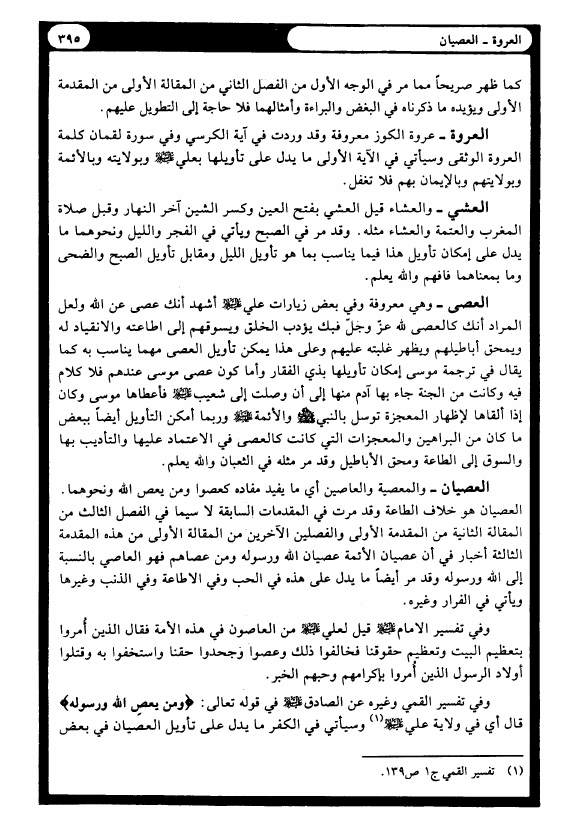 العروة ـ العصيان
٣٩٥
كما ظهر صريحاً مما مر في الوجه الأول من الفصل الثاني من المقالة الأولى من المقدمة
الأولى ويؤيده ما ذكرناه في البغض والبراءة وأمثالهما فلا حاجة إلى التطويل عليهم.
العروة ـ عروة الكوز معروفة وقد وردت في آية الكرسي وفي سورة لقمان كلمة
العروة الوثقى وسيأتي في الآية الأولى ما يدل على تأويلها بعلي وبولايته وبالأئمة
وبولايتهم وبالإيمان بهم فلا تغفل.
العشي ـ والعشاء قيل العشي بفتح العين وكسر الشين آخر النهار وقبل صلاة
المغرب والعتمة والعشاء مثله. وقد مر في الصبح ويأتي في الفجر والليل ونحوهما ما
يدل على إمكان تأويل هذا فيما يناسب بما هو تأويل الليل ومقابل تأويل الصبح والضحى
وما بمعناهما فافهم والله يعلم.
العصى ـ وهي معروفة وفي بعض زيارات علي أشهد أنك عصى عن الله ولعل
المراد أنك كالعصى لله عزّ وجَلّ فبك يؤدب الخلق ويسوقهم إلى اطاعته والانقياد له
ويمحق أباطيلهم ويظهر غلبته عليهم وعلى هذا يمكن تأويل العصى مهما يناسب به كما
يقال في ترجمة موسى إمكان تأويلها بذي الفقار وأما كون عصى موسى عندهم فلا كلام
فيه وكانت من الجنة جاء بها آدم منها إلى أن وصلت إلى شعيب فأعطاها موسى وكان
إذا ألقاها لإظهار المعجزة توسل بالنبي ﷺ والأئمة وربما أمكن التأويل أيضاً ببعض
ما كان من البراهين والمعجزات التي كانت كالعصى في الاعتماد عليها والتأديب بها
والسوق إلى الطاعة ومحق الأباطيل وقد مر مثله في الثعبان والله يعلم.
العصيان ـ والمعصية والعاصين أي ما يفيد مفاده كعصوا ومن يعص الله ونحوهما.
العصيان هو خلاف الطاعة وقد مرت في المقدمات السابقة لا سيما في الفصل الثالث من
المقالة الثانية من المقدمة الأولى والفصلين الآخرين من المقالة الأولى من هذه المقدمة
الثالثة أخبار في أن عصيان الأئمة عصيان الله ورسوله ومن عصاهم فهو العاصي بالنسبة
إلى الله ورسوله وقد مر أيضاً ما يدل على هذه في الحب وفي الاطاعة وفي الذنب وغيرها
ويأتي في الفرار وغيره.
وفي تفسير الامام قيل لعلي من العاصون في هذه الأمة فقال الذين أُمروا
بتعظيم البيت وتعظيم حقوقنا فخالفوا ذلك وعصوا وَجحدوا حقنا واستخفوا به وقتلوا
أولاد الرسول الذين أُمروا بإكرامهم وحبهم الخبر.
وفي تفسير القمي وغيره عن الصادق في قوله تعالى: ﴿ومن يعصِ الله ورسوله﴾
قال أي في ولاية علي (١) وسيأتي في الكفر ما يدل على تأويل العصيان في بعض
(١) تفسير القمي ج١ ص١٣٩.